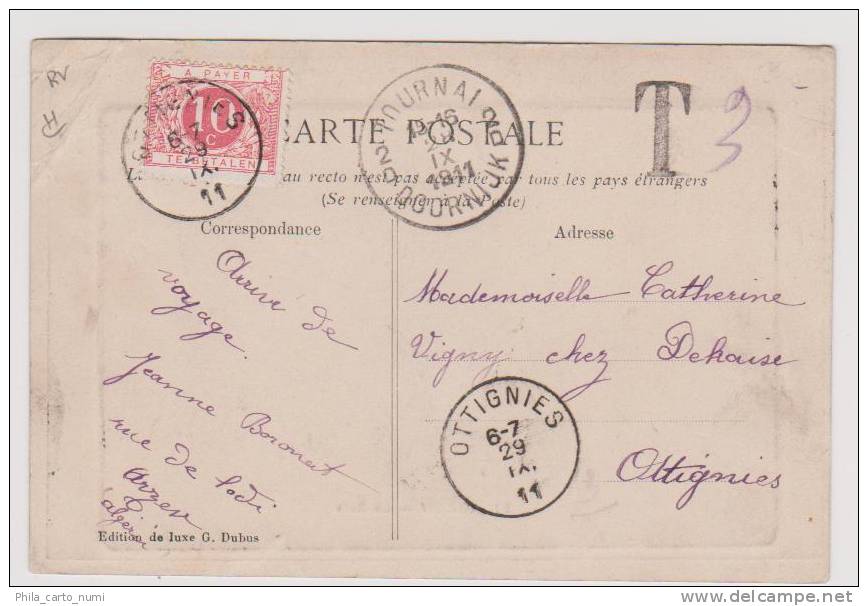 RV
A PAYER
10
C
TE BETALEN
OTTIGNIES
11
TOURNAI
16
IX
1911
DOORNIJK
T
3
CARTE POSTALE
au recto n'est pas acceptée par tous les pays étrangers
(Se renseigner à la Poste)
Correspondance
Adresse
Arrive de
voyage.
Jeanne
rue de lodi
Arzew
algérie
Mademoiselle Catherine
Vigny chez Dehaise
Ottignies
OTTIGNIES
6-7
29
IX.
11
Edition de luxe G. Dubus
Phila_carto_numi
www.delcampe.net